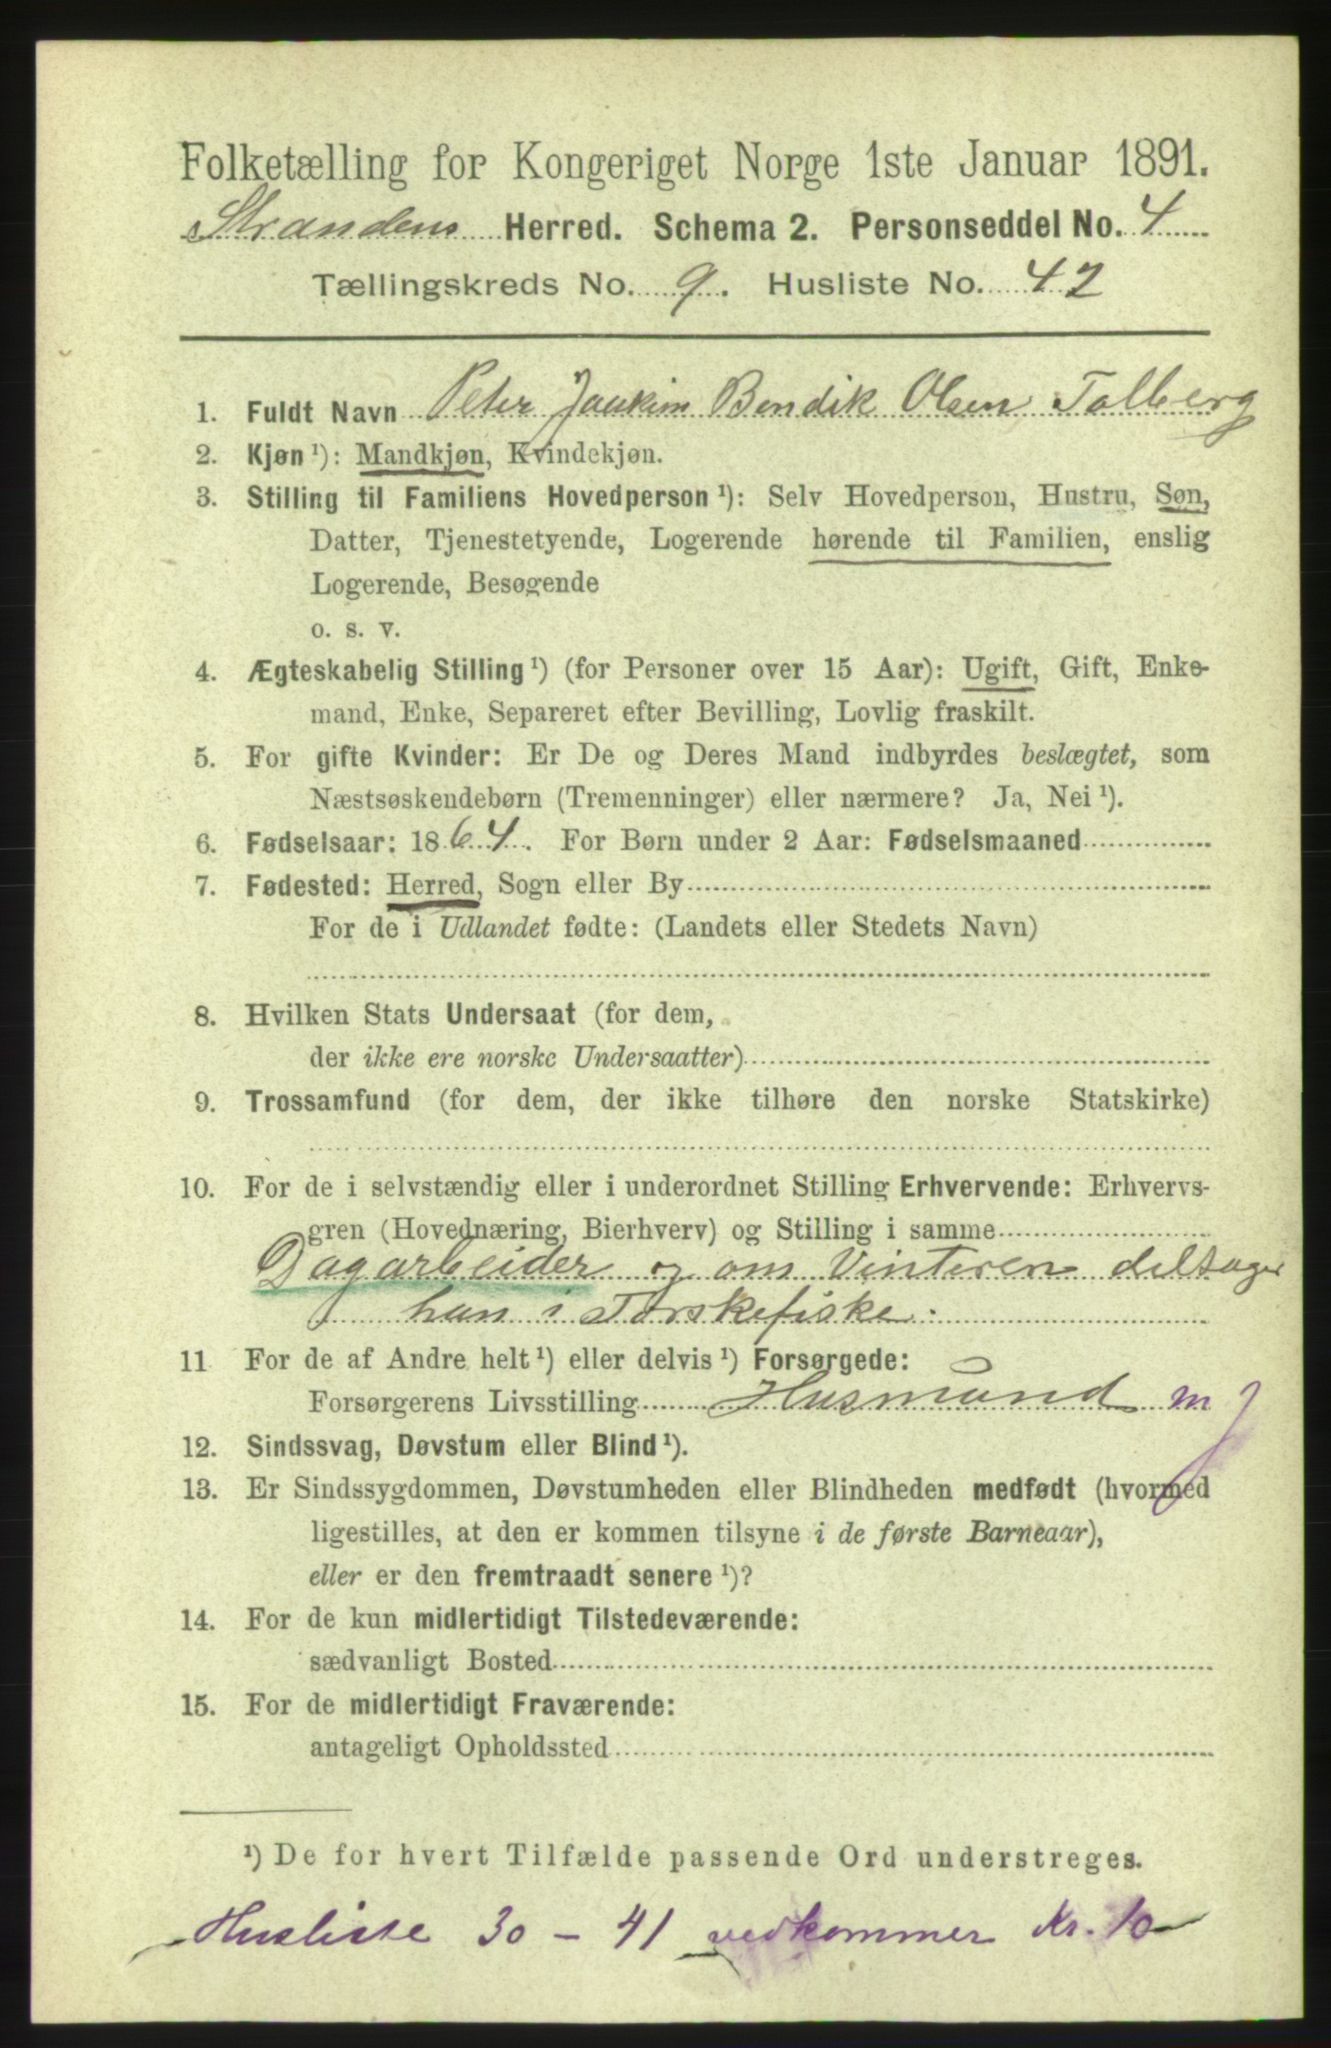 Folketælling for Kongeriget Norge 1ste Januar 1891.
Strandens Herred. Schema 2. Personseddel No. 4
Tællingskreds No. 9. Husliste No. 42
1. Fuldt Navn Peter Joakim Bendik Olsen Tolberg
2. Kjøn ¹): Mandkjøn, Kvindekjøn.
3. Stilling til Familiens Hovedperson ¹): Selv Hovedperson, Hustru, Søn,
Datter, Tjenestetyende, Logerende hørende til Familien, enslig
Logerende, Besøgende
o. s. v.
4. Ægteskabelig Stilling ¹) (for Personer over 15 Aar): Ugift, Gift, Enke-
mand, Enke, Separeret efter Bevilling, Lovlig fraskilt.
5. For gifte Kvinder: Er De og Deres Mand indbyrdes beslægtet, som
Næstsøskendebørn (Tremenninger) eller nærmere? Ja, Nei ¹).
6. Fødselsaar: 1864. For Børn under 2 Aar: Fødselsmaaned
7. Fødested: Herred, Sogn eller By
For de i Udlandet fødte: (Landets eller Stedets Navn)
8. Hvilken Stats Undersaat (for dem,
der ikke ere norske Undersaatter)
9. Trossamfund (for dem, der ikke tilhøre den norske Statskirke)
10. For de i selvstændig eller i underordnet Stilling Erhvervende: Erhvervs-
gren (Hovednæring, Bierhverv) og Stilling i samme
Dagarbeider og om Vinteren deltager
han i Torskefiske.
11 For de af Andre helt ¹) eller delvis ¹) Forsørgede:
Forsørgerens Livsstilling Husmand m J
12. Sindssvag, Døvstum eller Blind ¹).
13. Er Sindssygdommen, Døvstumheden eller Blindheden medfødt (hvormed
ligestilles, at den er kommen tilsyne i de første Barneaar),
eller er den fremtraadt senere ¹)?
14. For de kun midlertidigt Tilstedeværende:
sædvanligt Bosted
15. For de midlertidigt Fraværende:
antageligt Opholdssted
¹) De for hvert Tilfælde passende Ord understreges.
Husliste 30 - 41 vedkommer Kr. 10